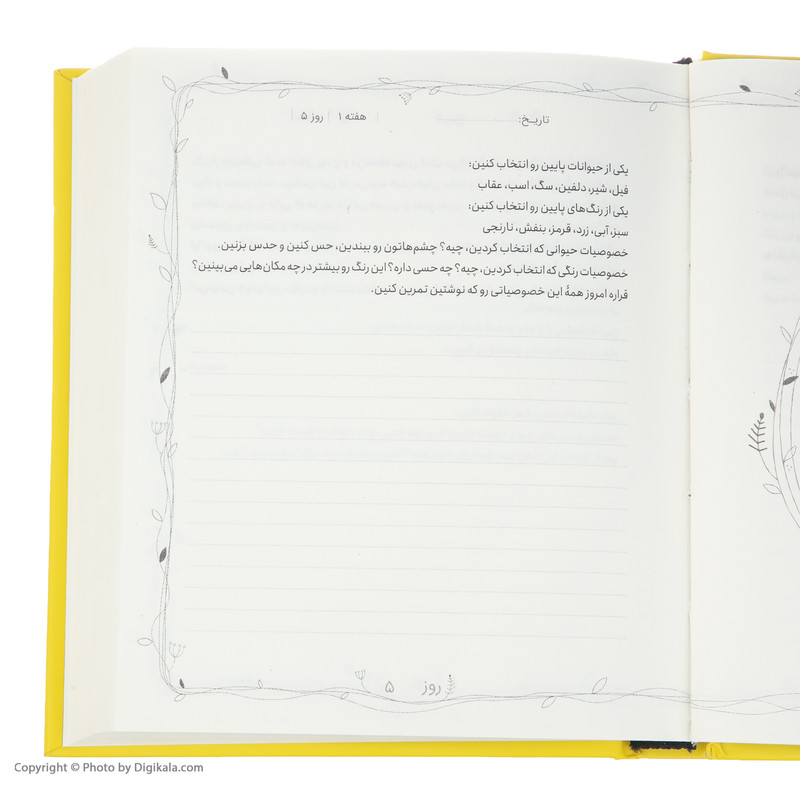 تاریخ: | هفته ۱ | روز ۵ |
یکی از حیوانات پایین رو انتخاب کنین:
فیل، شیر، دلفین، سگ، اسب، عقاب
یکی از رنگ‌های پایین رو انتخاب کنین:
سبز، آبی، زرد، قرمز، بنفش، نارنجی
خصوصیات حیوانی که انتخاب کردین، چیه؟ چشم‌هاتون رو ببندین، حس کنین و حدس بزنین.
خصوصیات رنگی که انتخاب کردین، چیه؟ چه حسی داره؟ این رنگ رو بیشتر در چه مکان‌هایی می‌بینین؟
قراره امروز همهٔ این خصوصیاتی رو که نوشتین تمرین کنین.
روز ۵
Copyright © Photo by Digikala.com